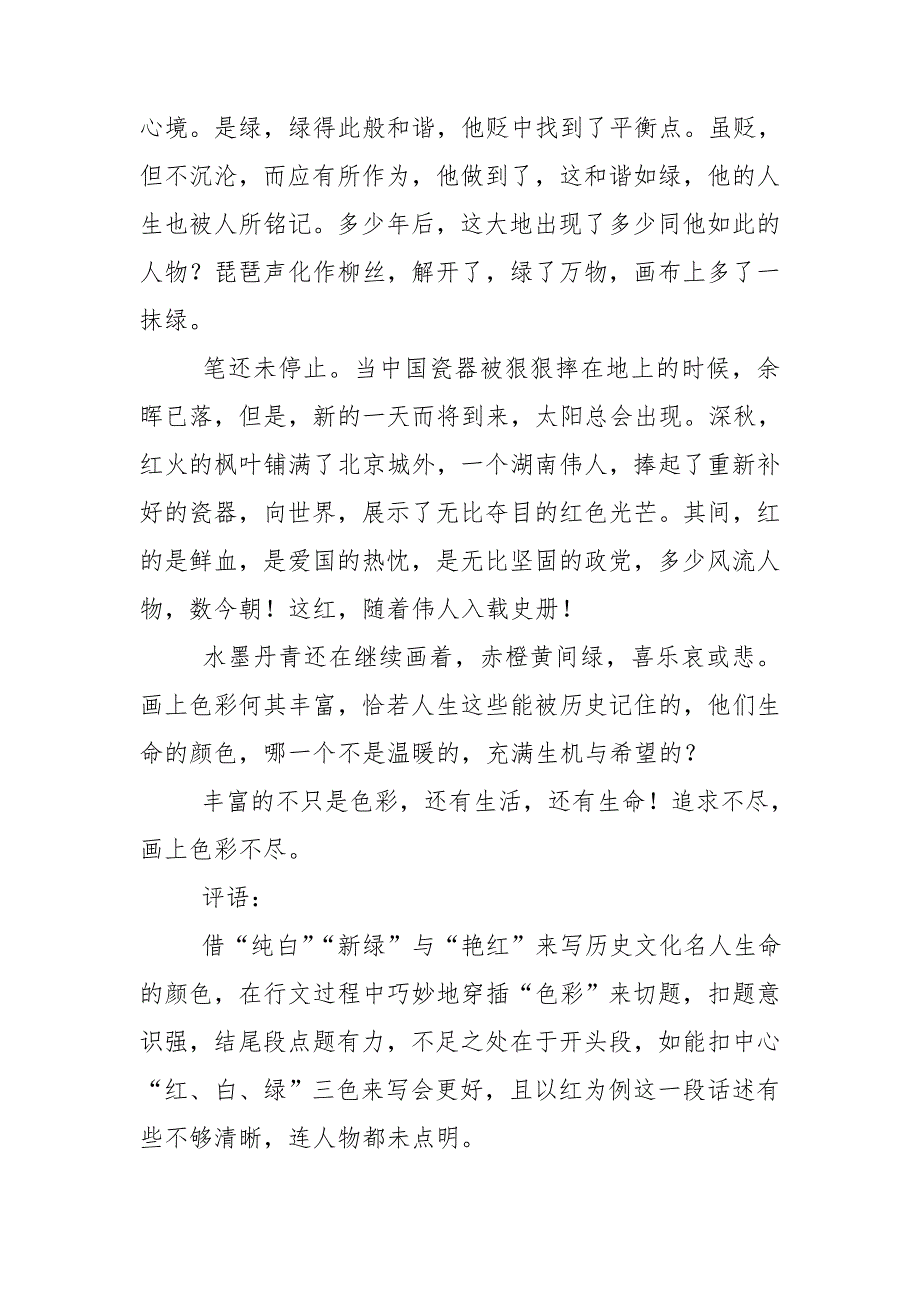 心境。是绿，绿得此般和谐，他贬中找到了平衡点。虽贬，
但不沉沦，而应有所作为，他做到了，这和谐如绿，他的人
生也被人所铭记。多少年后，这大地出现了多少同他如此的
人物？琵琶声化作柳丝，解开了，绿了万物，画布上多了一
抹绿。
笔还未停止。当中国瓷器被狠狠摔在地上的时候，余
晖已落，但是，新的一天而将到来，太阳总会出现。深秋，
红火的枫叶铺满了北京城外，一个湖南伟人，捧起了重新补
好的瓷器，向世界，展示了无比夺目的红色光芒。其间，红
的是鲜血，是爱国的热忱，是无比坚固的政党，多少风流人
物，数今朝！这红，随着伟人入载史册！
水墨丹青还在继续画着，赤橙黄间绿，喜乐哀或悲。
画上色彩何其丰富，恰若人生这些能被历史记住的，他们生
命的颜色，哪一个不是温暖的，充满生机与希望的？
丰富的不只是色彩，还有生活，还有生命！追求不尽，
画上色彩不尽。
评语：
借“纯白”“新绿”与“艳红”来写历史文化名人生命
的颜色，在行文过程中巧妙地穿插“色彩”来切题，扣题意
识强，结尾段点题有力，不足之处在于开头段，如能扣中心
“红、白、绿”三色来写会更好，且以红为例这一段话述有
些不够清晰，连人物都未点明。